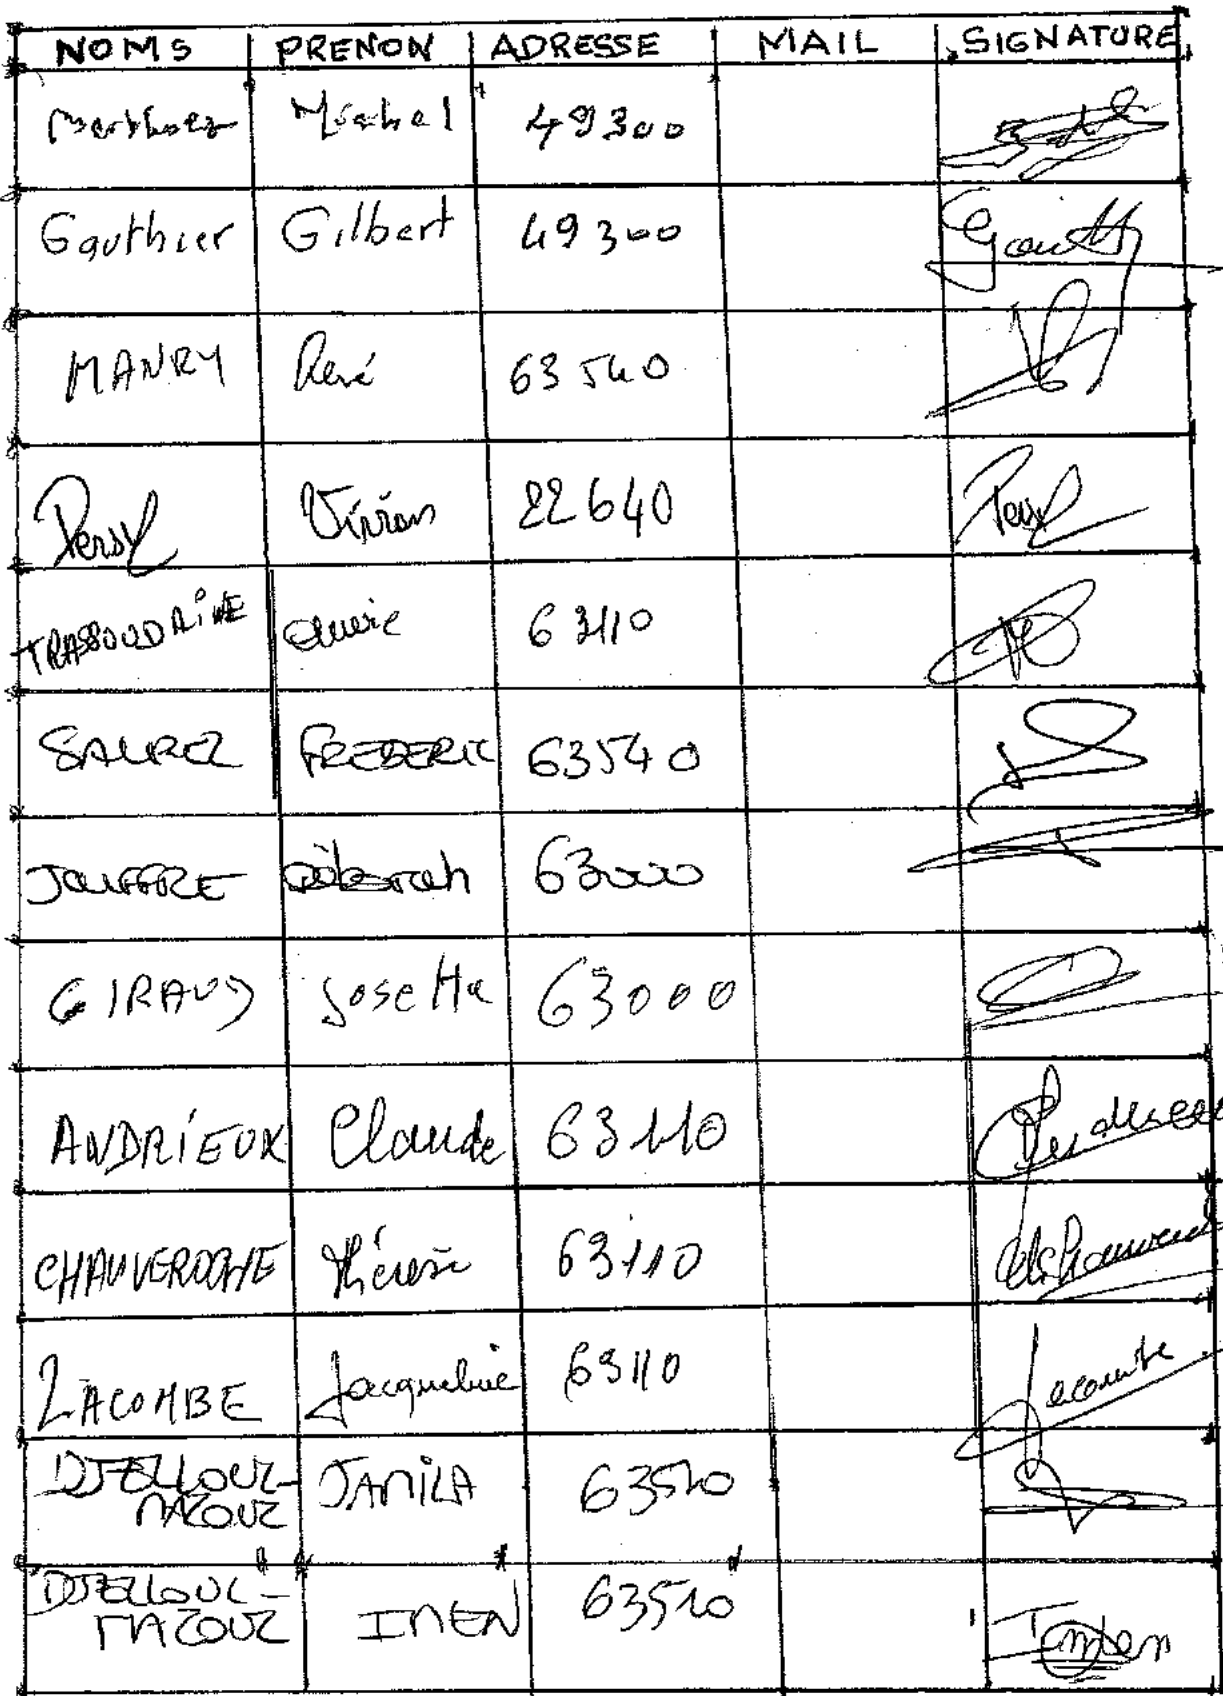 NOMS PRENON ADRESSE MAIL SIGNATURE
Michel 49300
Gauthier Gilbert 49300 Gauth
MANRY René 63540
Persyl 22640 Persyl
TRASSOUDAINE 63110
SAUREL FREDERIC 63540
JOUFFRE Déborah 63000
GIRAUD Josette 63000
ANDRIEUX Claude 63110
CHAUVEROCHE Thérèse 63110
LACOMBE Jacqueline 63110 Lacombe
DJELLOUL-
MAZOUZ JAMILA 63510
DJELLOUL-
MAZOUZ IMEN 63510 Imen